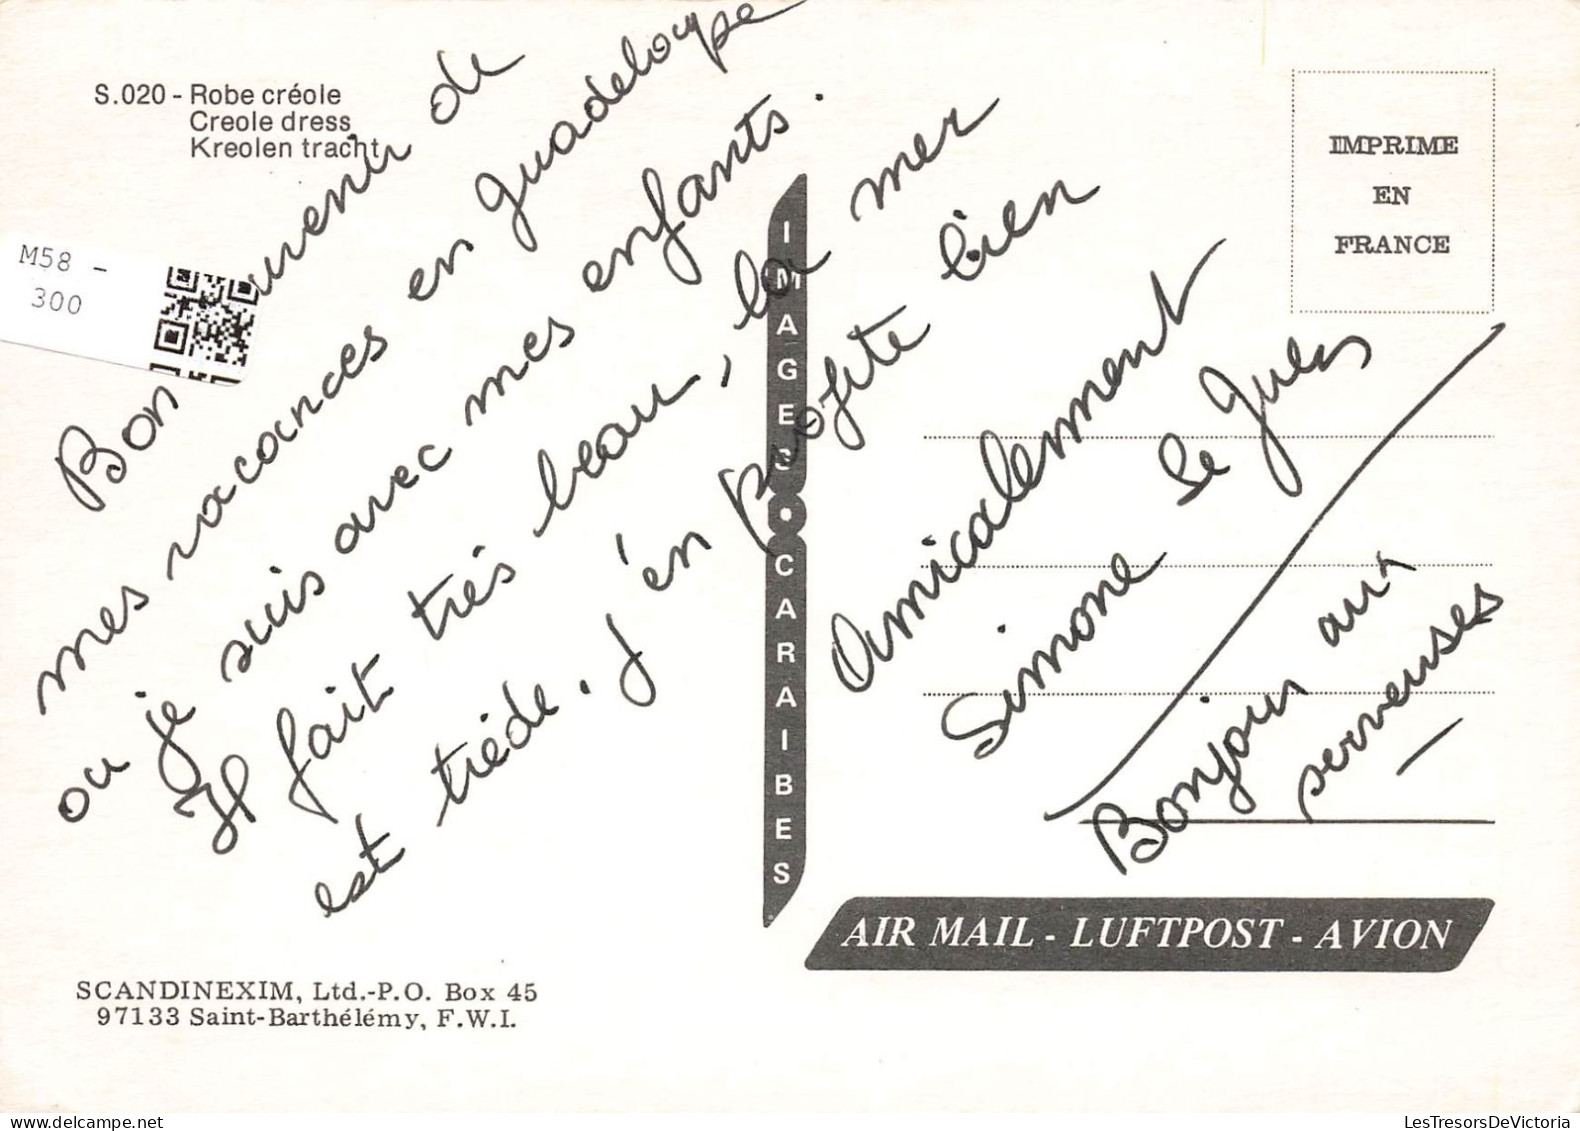 S.020 - Robe créole
Creole dress
Kreolen tracht
M58 -
300
Bon souvenir de
mes vacances en guadeloupe
ou je suis avec mes enfants.
Il fait très beau, la mer
est tiède. J'en profite bien
Amicalement
Simone Le Jules
Bonjour aux
serveuses
IMAGES • CARAIBES
IMPRIME
EN
FRANCE
AIR MAIL - LUFTPOST - AVION
SCANDINEXIM, Ltd.-P.O. Box 45
97133 Saint-Barthélémy, F.W.I.
LesTresorsDeVictoria